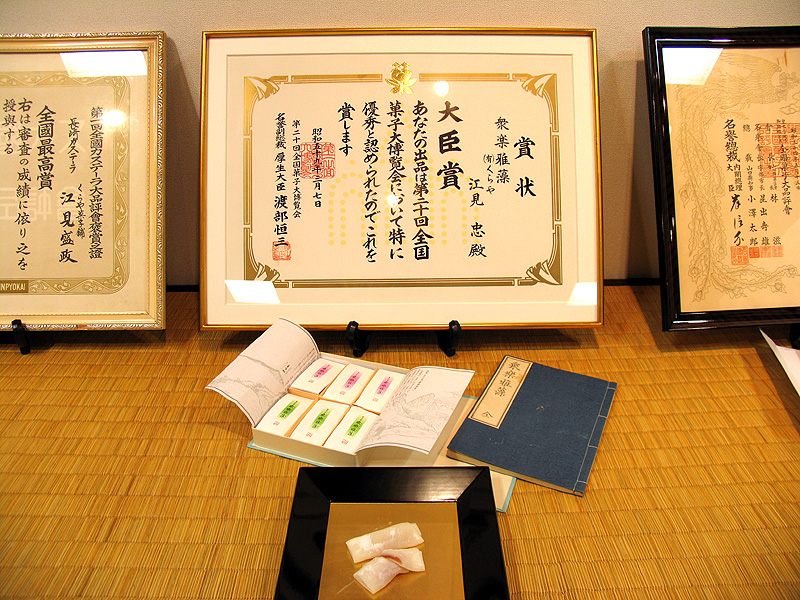 賞状
衆樂雅藻
(有)くらや
江見 忠殿
大臣賞
あなたの出品は第二十回全国
菓子大博覧会において特に
優秀と認められたのでこれを
賞します
昭和五十九年三月七日
第二十回全国菓子大博覧会
名誉副総裁 厚生大臣 渡部恒三
第一回全國カステーラ大品評會褒賞之證
長崎カステーラ
江見盛政
全國最高賞
右は審査の成績に依り之を
授與する
NPYOKAI
大品評會
林 滋
星出寿雄
山口縣知事 小澤太郎
名誉總裁 内閣總理大臣 岸信介
衆樂雅藻 全